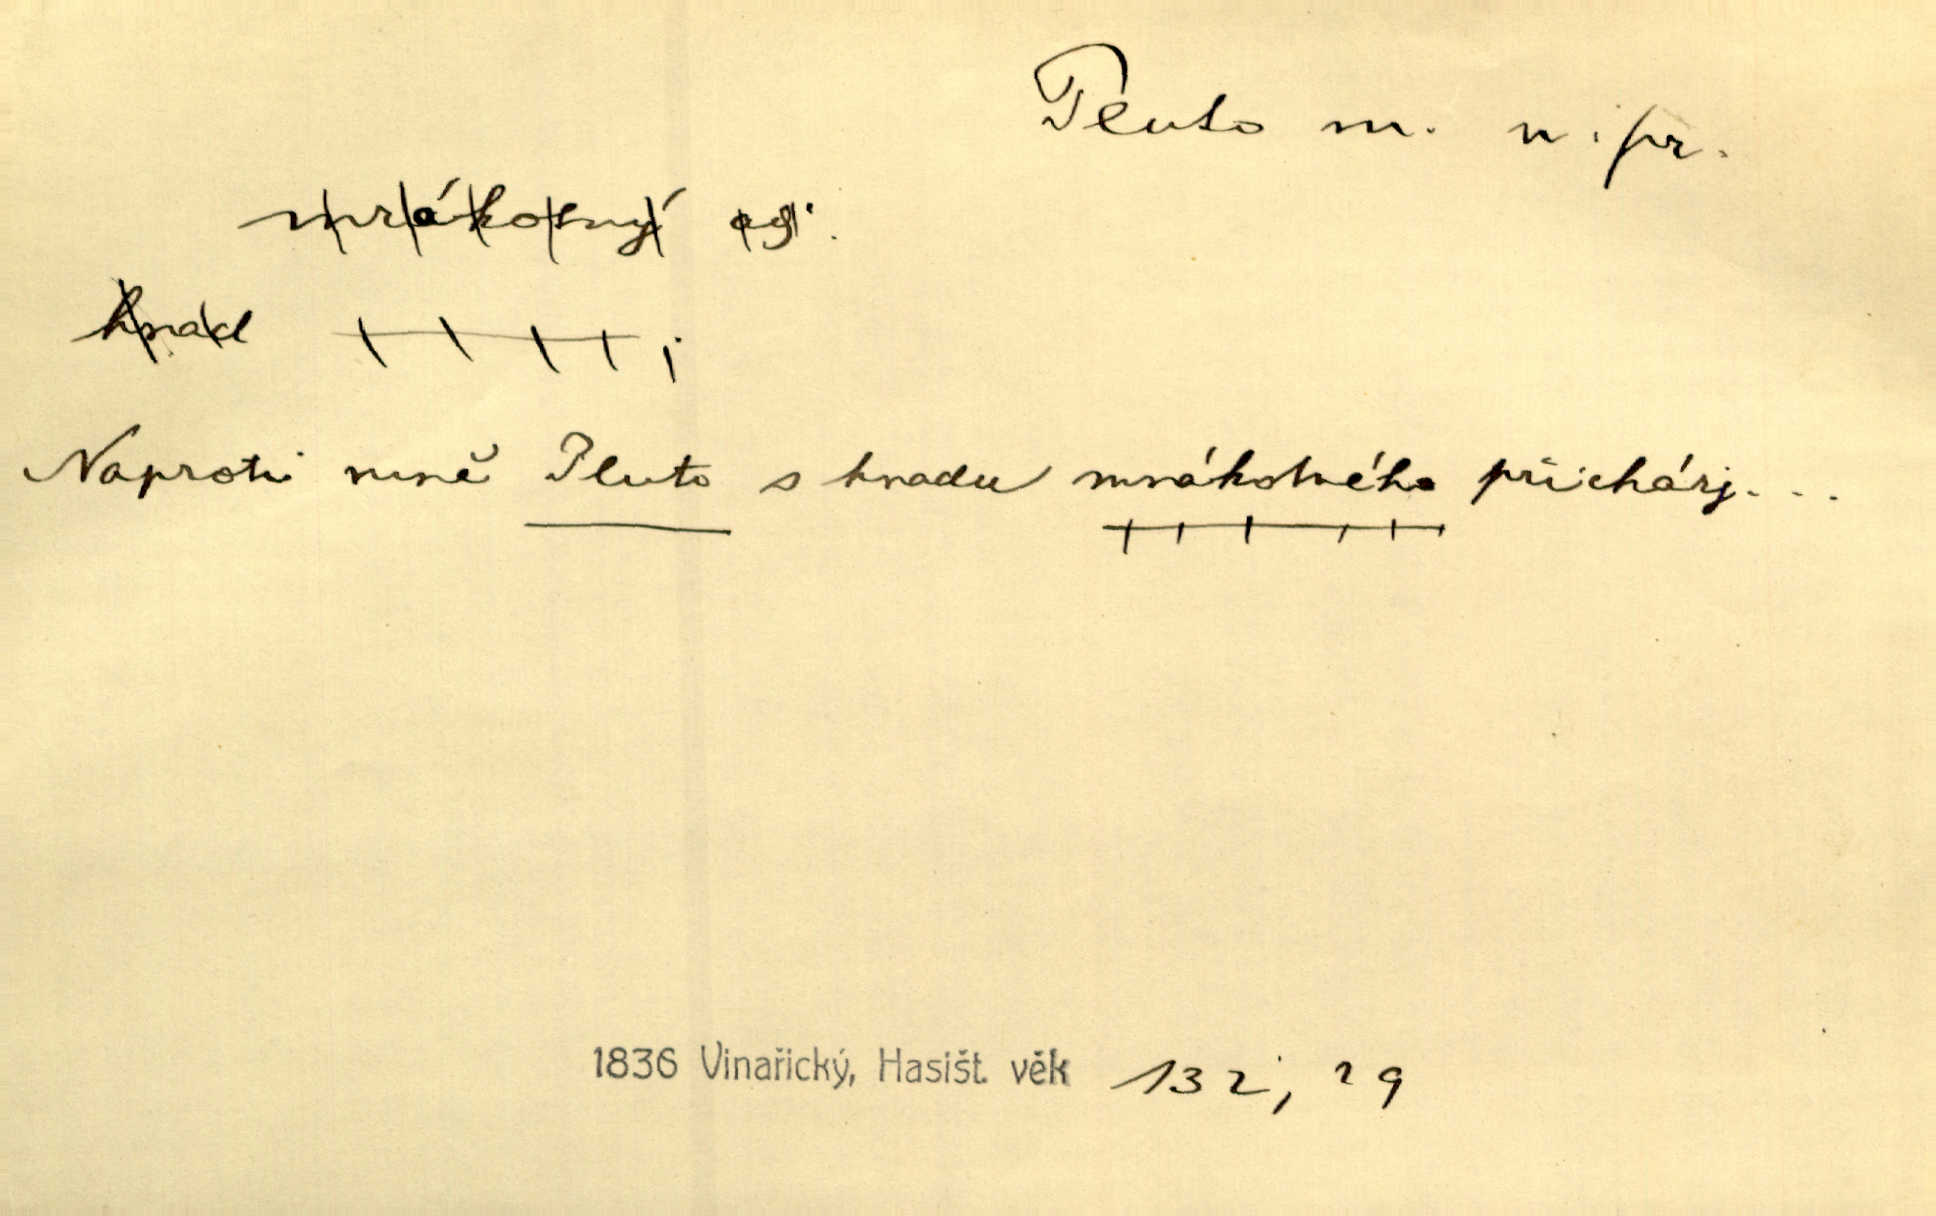 Pluto m. n. pr.
mrákotný adj.
hrad
Naproti mně Pluto s hradu mrákotného přicházj...
1836 Vinařický, Hasišt. věk 132, 29